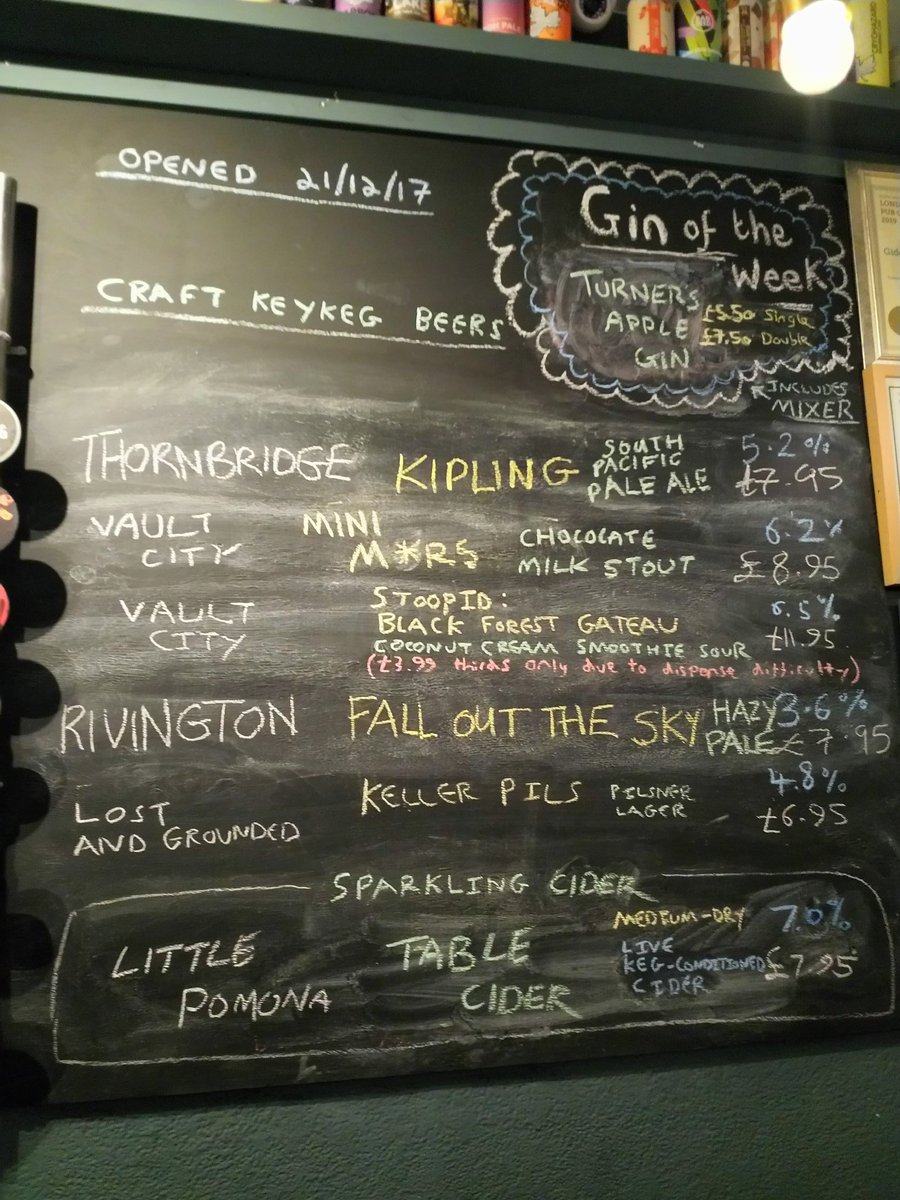 OPENED 21/12/17
Gin of the
Week
TURNERS
APPLE
GIN
£5.50 Single
£7.50 Double
INCLUDES
MIXER
CRAFT KEYKEG BEERS
THORNBRIDGE KIPLING
SOUTH
PACIFIC
PALE ALE
5.2%
£7.95
VAULT
CITY
MINI
M*RS
CHOCOLATE
MILK STOUT
6.2%
£8.95
VAULT
CITY
STOOPID:
BLACK FOREST GATEAU
COCONUT CREAM SMOOTHIE SOUR
(£3.99 thirds only due to dispense difficulty)
6.5%
£11.95
RIVINGTON FALL OUT THE SKY
HAZY
PALE
3.6%
£7.95
LOST
AND GROUNDED
KELLER PILS
PILSNER
LAGER
4.8%
£6.95
SPARKLING CIDER
LITTLE
POMONA
TABLE
CIDER
MEDIUM-DRY
LIVE
KEG-CONDITIONED
CIDER
7.0%
£7.95